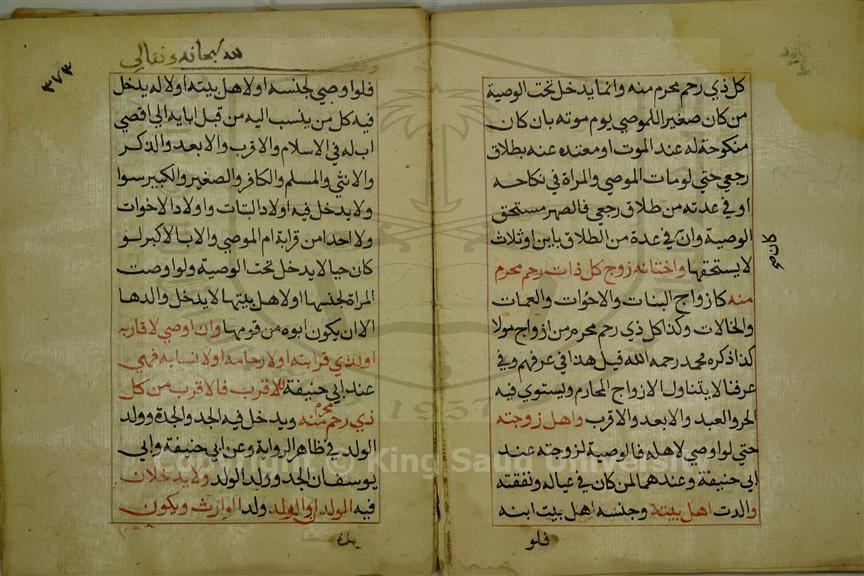 كل ذي رحم محرم منه وانما يدخل تحت الوصية
من كان صغيرا للموصي يوم موته بان كان
منكوحة له عند الموت او معتده عنه بطلاق
رجعي حتي لو مات الموصي والمراة في نكاحه
او في عدته من طلاق رجعي فالصهر مستحق
الوصية وان في عدة من الطلاق باين او ثلاث
لا يستحقها واختانه زوج كل ذات رحم محرم
منه كازواج البنات والاخوات والعمات
والخالات وكذا كل ذي رحم محرم من ازواج مولا
كذا ذكره محمد رحمه الله قيل هذا في عرفهم وفي
عرفنا لا يتناول الا زواج المحارم ويستوي فيه
الحر والعبد والابعد والاقرب واهل زوجته
حتي لو اوصي لاهله فالوصية لزوجته عند
ابي حنيفة وعندهما لمن كان في عياله ونفقته
والدت اهل بيتة وجنسه اهل بيت ابنه
فلو
كان صح
لله سبحانه وتعالي
٣٧٣
فلو اوصي لجنسه او لاهل بيته او لاله يدخل
فيه كل من ينسب اليه من قبل ابايه الي اقصي
اب له في الاسلام والاقرب والابعد والدكر
والانثي والمسلم والكافر والصغير والكبير سوا
ولا يدخل فيه اولاد البنات واولاد الاخوات
ولا احد من قرابة ام الموصي والاب الاكبر لو
كان حيا لا يدخل تحت الوصية ولو اوصت
المراة لجنسها او لاهل بيتها لا يدخل والدها
الا ان يكون ابوه من قومها وان اوصي لاقاربه
او لذي قرابته او لارحامه او لانسابه فهي
عند ابي حنيفة للاقرب فالاقرب من كل
ذي رحم محرم منه ويدخل فيه الجد والجدة وولد
الولد في ظاهر الرواية وعن ابي حنيفة وابي
يوسف ان الجد وولد الولد ولا يدخلان
فيه الولد او الولد ولدا الوارث ويكون
King Saud University
1957